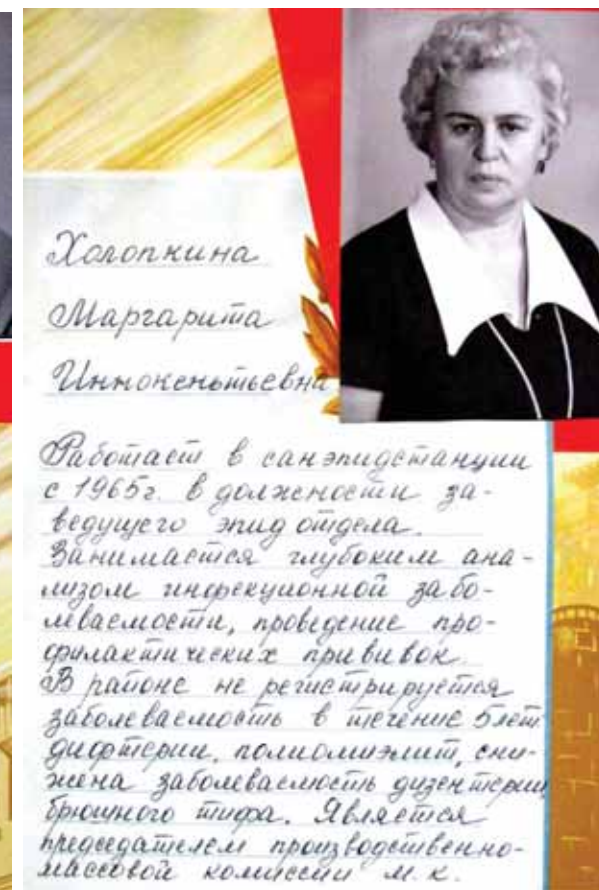 Холопкина
Маргарита
Иннокентьевна
Работает в санэпидстанции
с 1965г. в должности за-
ведущего эпид отдела.
Занимается глубоким ана-
лизом инфекционной забо-
леваемости, проведение про-
филактических прививок.
В районе не регистрируется
заболеваемость в течение 5 лет
дифтерии, полиомиэлит, сни-
жена заболеваемость дизентерии,
брюшного тифа. Является
председателем производственно-
массовой комиссии м.к.